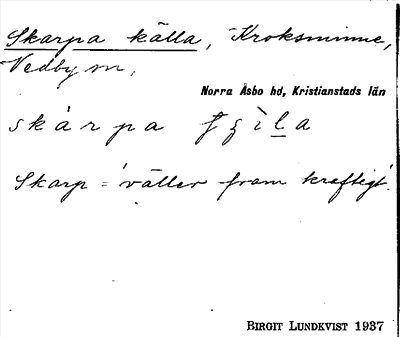 Skarpa källa, Kroksminne,
Vedby sn,
Norra Åsbo hd, Kristianstads län
skarpa
Skarp = 'väller fram kraftigt'.
BIRGIT LUNDKVIST 1937